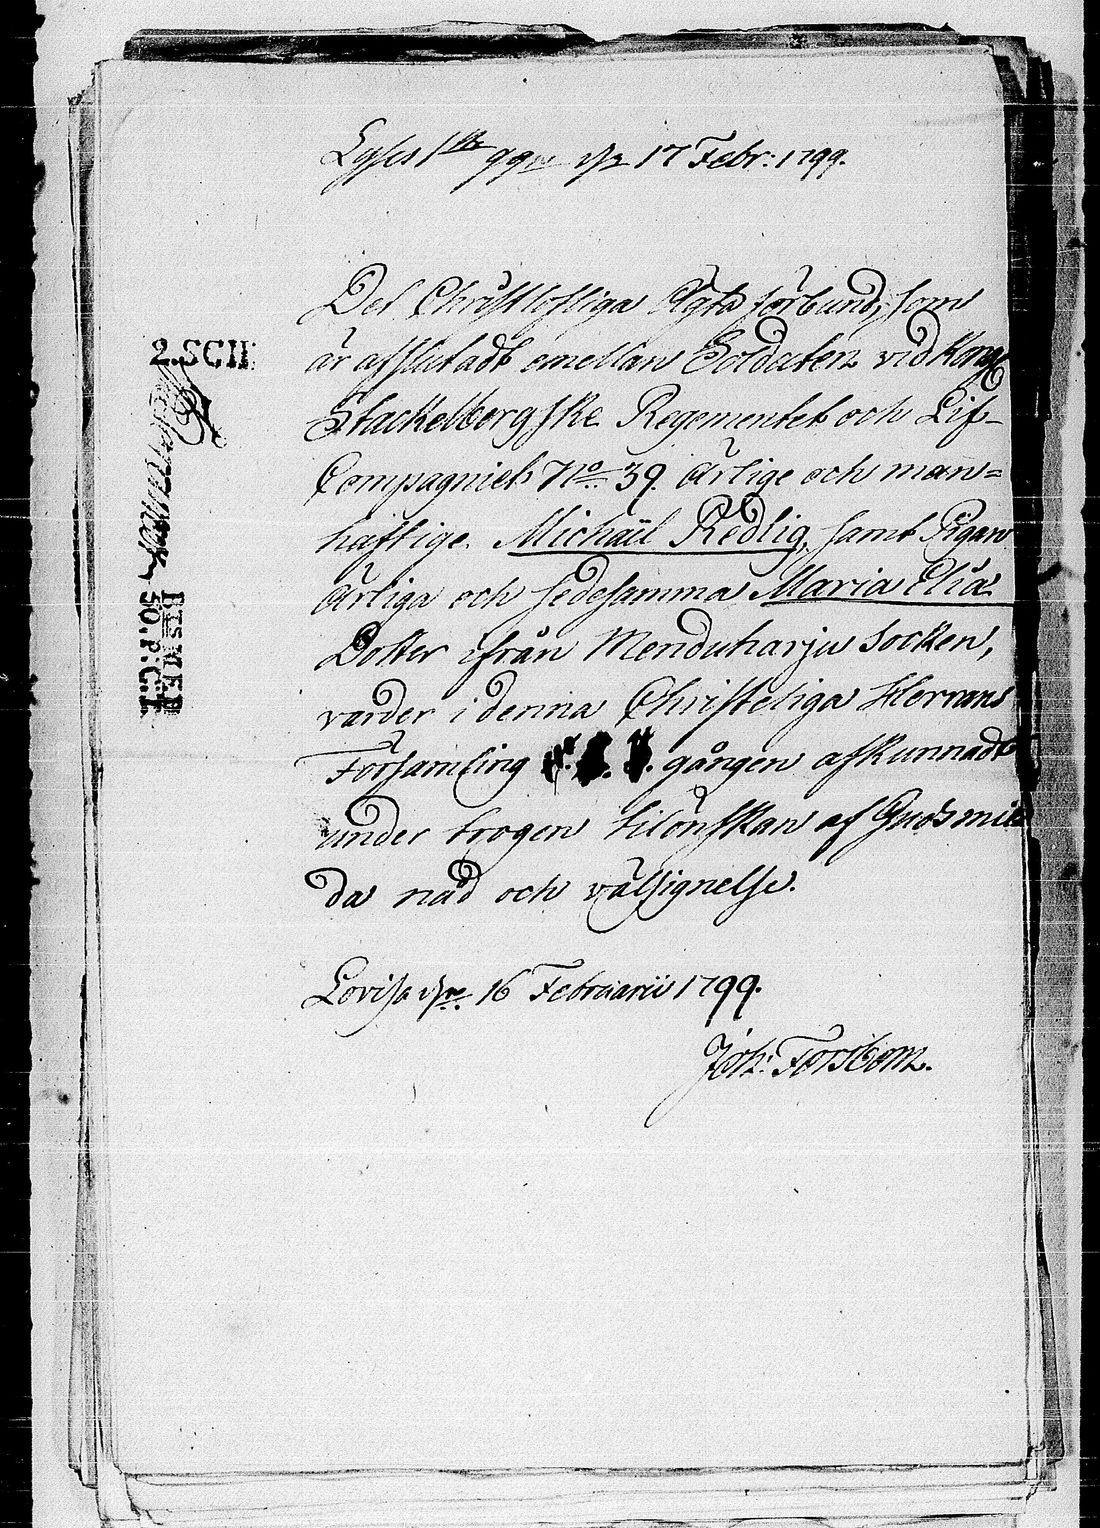 Lyses 1sta ggn d. 17 Febr: 1799.
Det Christlofliga Ägta förbund, som
är afslutadt emellan Soldaten vid Kongl
Stackelbergske Regementet och Lif-
Compagniet No. 39. ärlige och man=
haftige Michaël Redlig, samt Pigan
ärliga och sedesamma Maria Eliæ
Dotter ifrån Menduharju Socken,
varder i denna Christeliga Herrans
Församling gången afkunnadt
under trogen tilönskan af Guds mil
da nåd och välsignelse.
Lovisa d. 16 Februarii 1799.
Joh: Forsbom.
2. SCH
50. P: C: